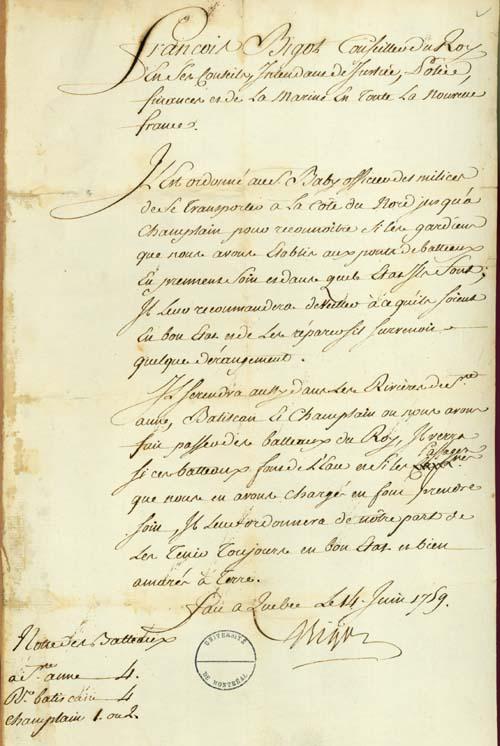 François Bigot Conseiller du Roy
En Ses Conseils, Intendant de Justice, Police,
finances et de La Marine En Toute La Nouvelle
france.
Il Est ordonné au S. Baby officier des milices
de Se Transporter a La Côte du Nord jusqu'a
Champlain pour reconnoître Si Les gardiens
que nous avons Etablis aux ponts de batteaux
En prennent Soin et dans quel Etat Ils Sont,
Il Leur recommandera de veiller a ce qu'ils soient
En bon Etat et de Les réparer s'il survenoit
quelque dérangement.
Il se rendra aussy dans Les Rivières de Ste
anne, Batiscan Et Champlain ou nous avons
fait passer des batteaux du Roy, Il verra
si ces batteaux font de L'Eau et si les
que nous en avons chargé en font prendre
soin, Il Leur ordonnera de nôtre part de
Les Tenir Toujours en bon Etat et bien
amarés à Terre.
Fait a Quebec Le 14 Juin 1759.
Bigot
Notte des Batteaux
a Ste anne 4.
batiscan 4
Champlain 1. ou 2.
UNIVERSITÉ
DE MONTRÉAL